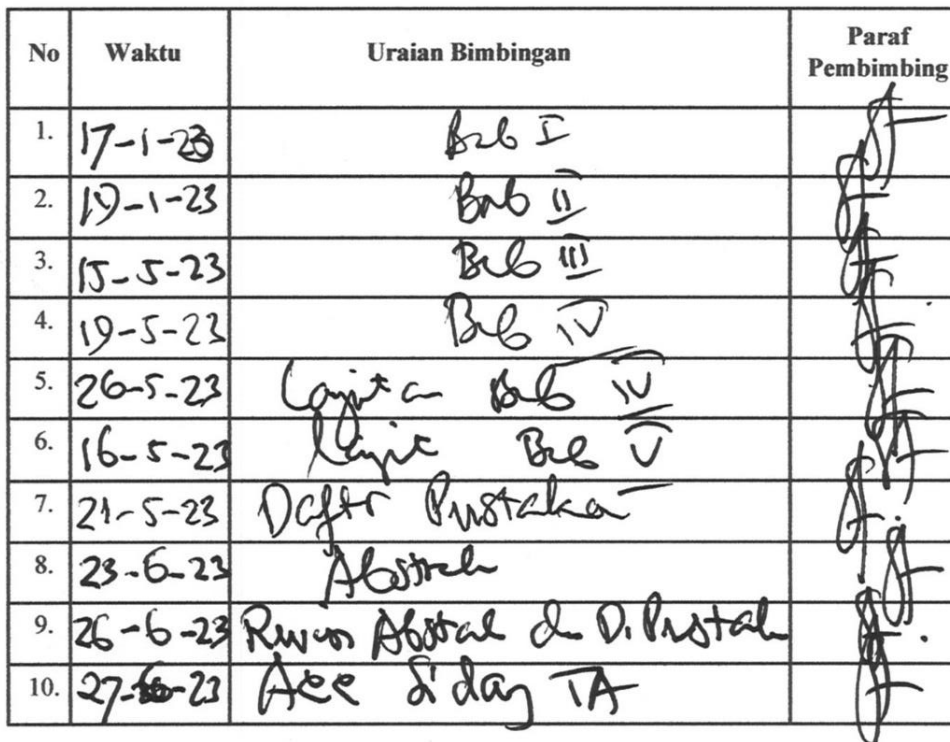 No Waktu Uraian Bimbingan Paraf Pembimbing
1. 17-1-23 Bab I
2. 19-1-23 Bab II
3. 15-5-23 Bab III
4. 19-5-23 Bab IV
5. 26-5-23 Lanjutan Bab IV
6. 16-5-23 Lanjut Bab V
7. 21-5-23 Daftr Pustaka
8. 23-6-23 Abstrak
9. 26-6-23 Abstrak D. Pustak
10. 27-6-23 Acc Sidang TA